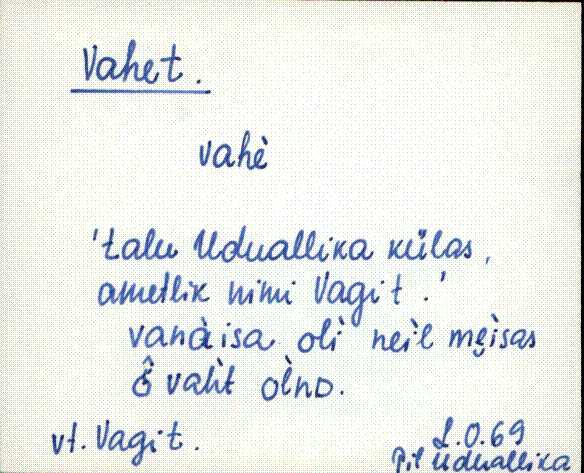 Vahet.
vahè
'talu Uduallika külas,
ametlik nimi Vagit.'
vanàisa oli neil
vaht olnd.
vt. Vagit.
L.O.69
Uduallika